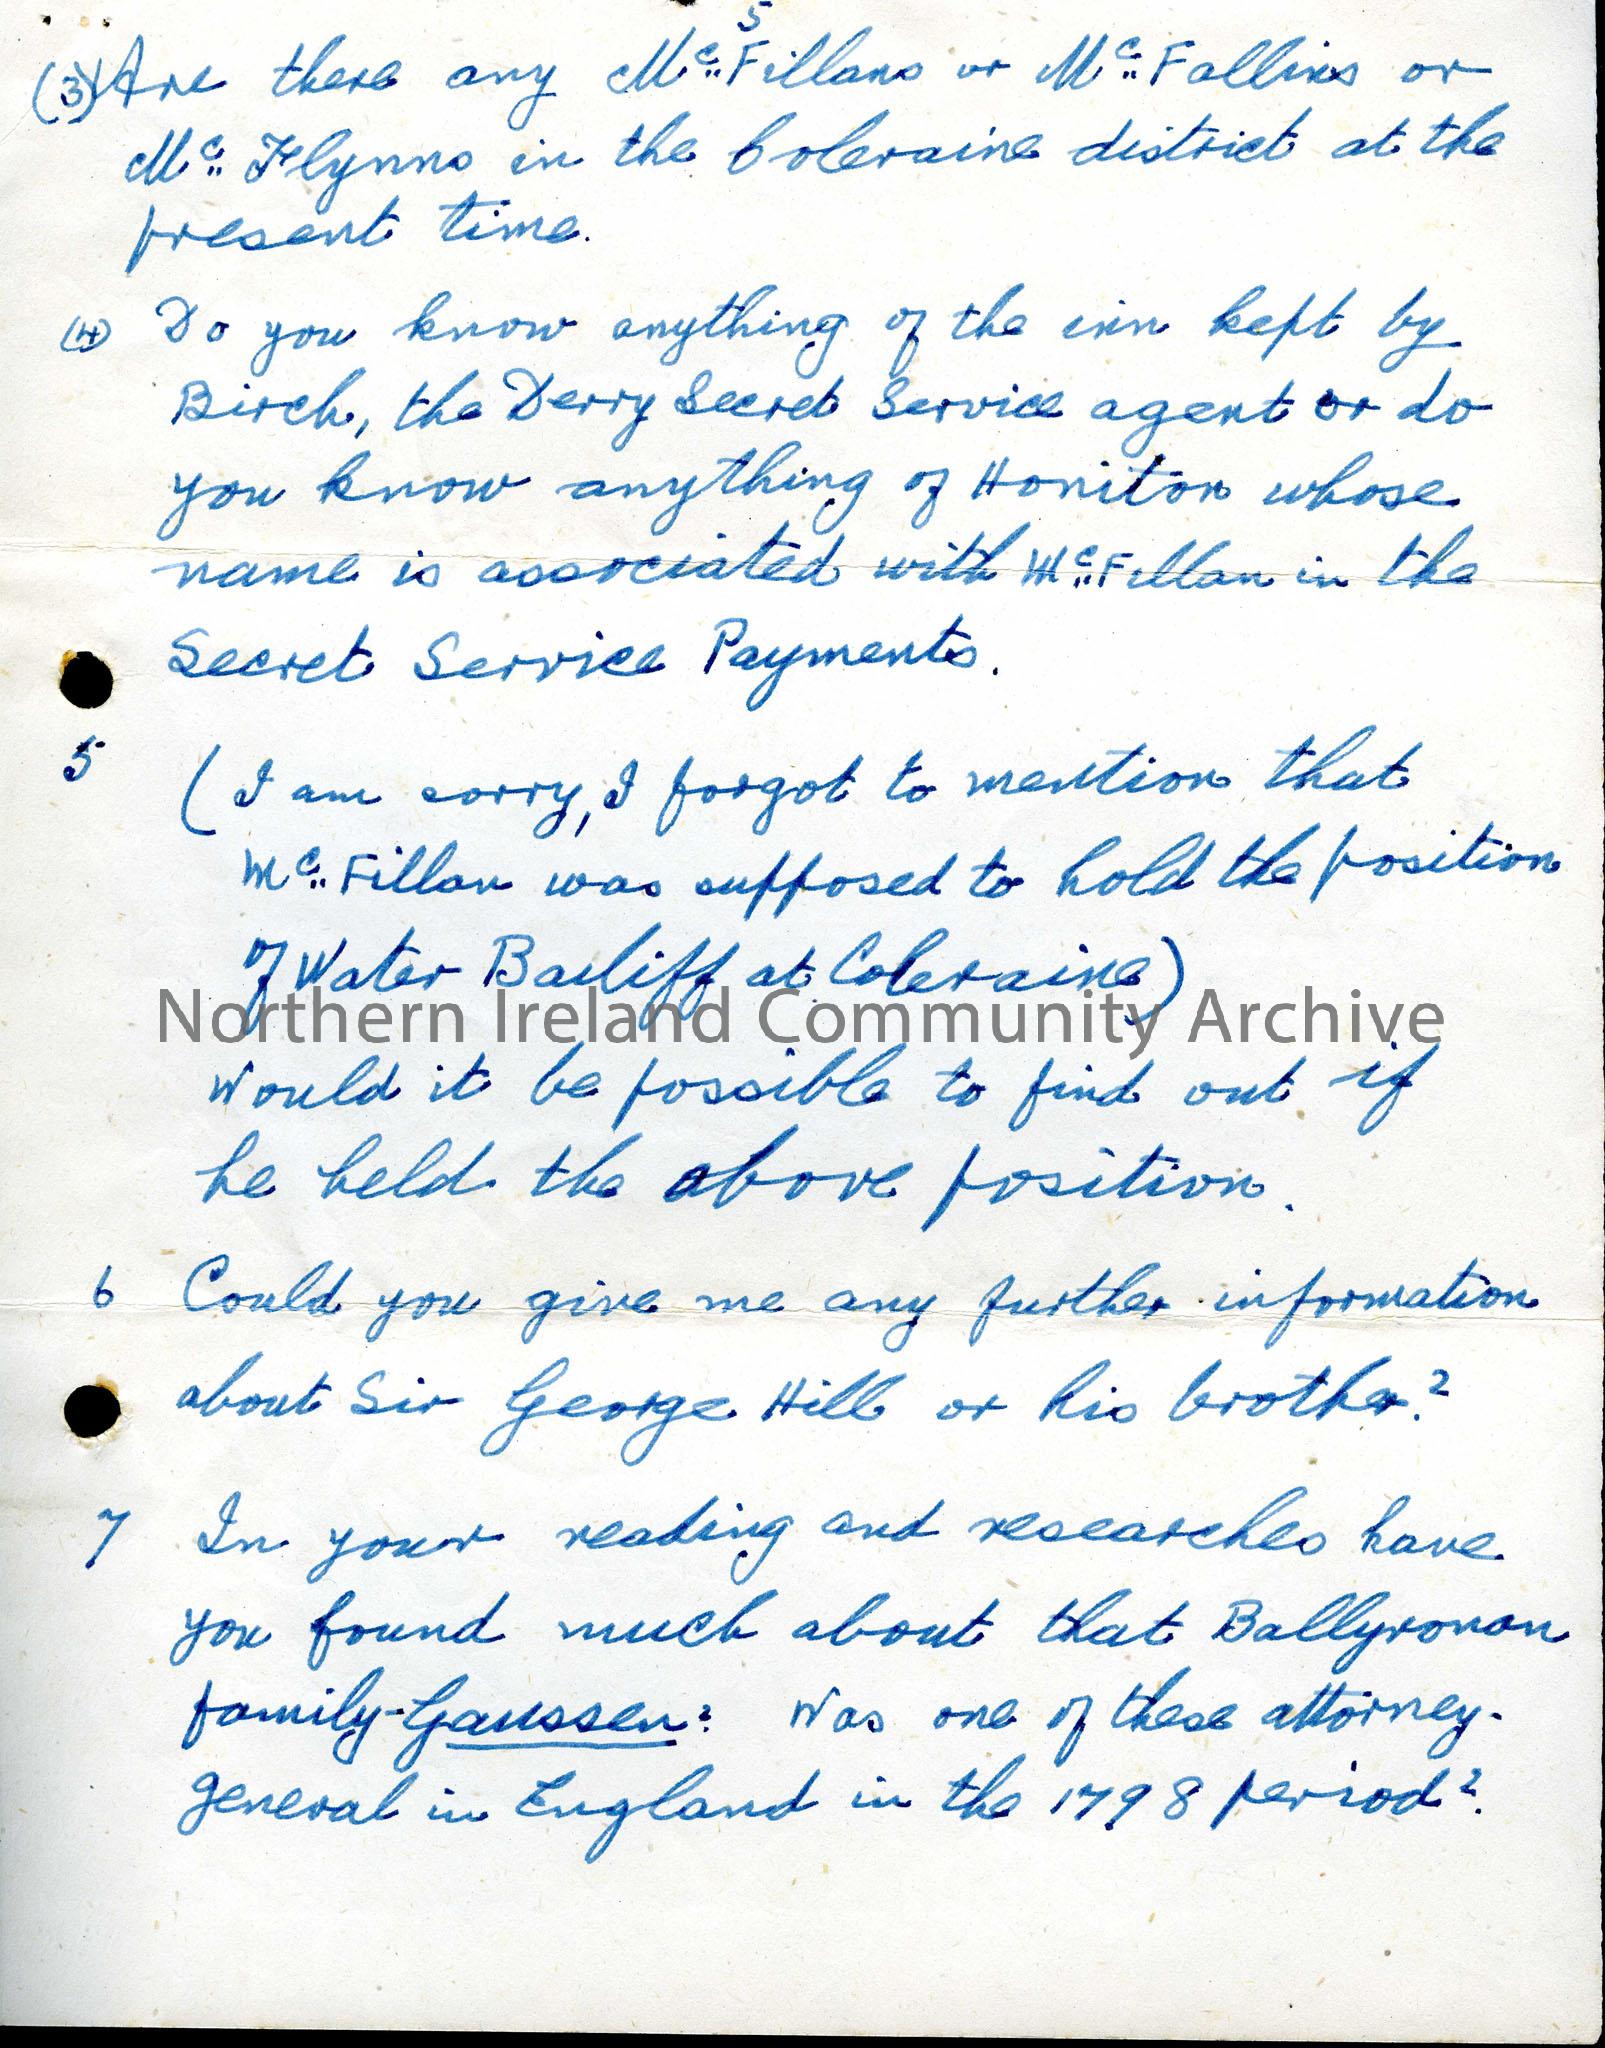 5
(3) Are there any Mc. Fillans or Mc. Fallins or
Mc. Flynns in the Coleraine district at the
present time.
(4) Do you know anything of the inn kept by
Birch, the Derry Secret Service agent or do
you know anything of Honiton whose
name is associated with Mc. Fillan in the
Secret Service Payments.
5 (I am sorry, I forgot to mention that
Mc. Fillan was supposed to hold the position
of Water Bailiff at Coleraine)
Northern Ireland Community Archive
Would it be possible to find out if
he held the above position.
6 Could you give me any further information
about Sir George Hill or his brother?
7 In your reading and researches have
you found much about that Ballyronan
family-Gaussen? Was one of these attorney-
general in England in the 1798 period?